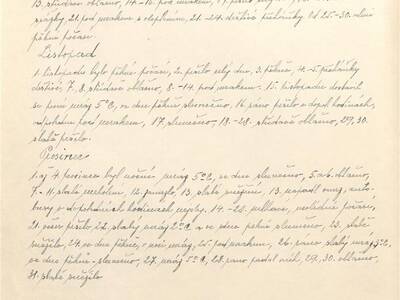 13. studeno oblačno, 14.-16. pod mrakem, 17. pršelo
srážky, 21. pod mrakem s olejskem, 21.-24. deštivo přeháňky. Od 25.-30. velmi
pěkné počasí.
Listopad
1. listopadu bylo pěkné počasí, 2. pršelo celý den, 3. pěkně, 4.-5. přeháňky
deštivé, 7. 8. studeně oblačno, 8.-14. pod mrakem. 15. listopadu dostavil
se první mráz 5°C, ve dne pěkně slunečno. 16. ráno pršelo v dopol. hodinách,
odpoledne pod mrakem, 17. slunečno, 18.-28. studeně oblačno, 29. 30.
slabě pršelo.
Prosinec
1. až 4. prosince byl noční mráz 5°C, ve dne slunečno, 5. a 6. oblačno,
7.-11. slabá metelení, 12. jinovatka, 13. slabé sněžení, 13. napadl sníh,
v dopoledních hodinách 14.-20. mlhavé, nevlídné počasí,
21. večer pršelo, 22. slabý mráz 2°C a ve dne pěkně slunečno, 23. slabě
sněžilo, 24. ve dne pěkně, v noci mráz, 25. pod mrakem, 26. ráno slabý mráz 3°C,
ve dne pěkně - slunečno, 27. mráz 5°C, 28. ráno padal sníh, 29., 30. oblačno,
31. slabě sněžilo